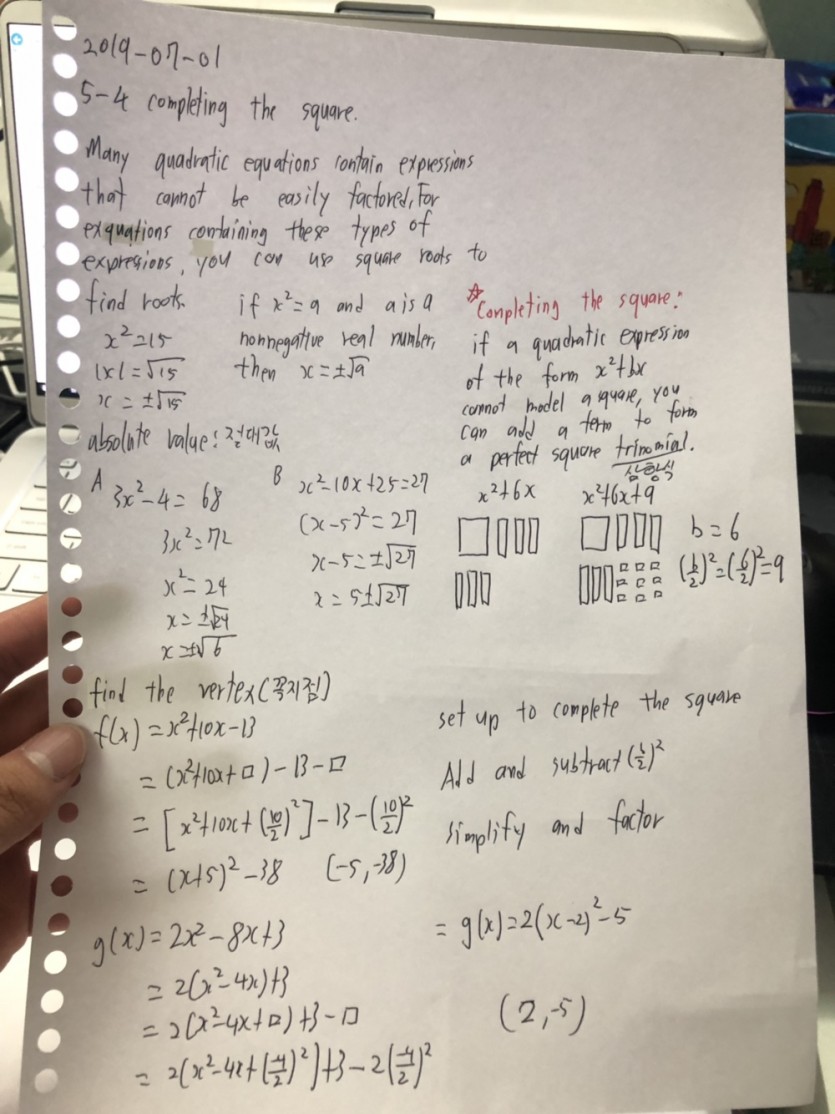 2019-07-01
5-4 completing the square.
Many quadratic equations contain expressions
that cannot be easily factored, For
exquations containing these types of
expressions, you can use square roots to
find roots.
x²=15
|x|=√15
x=±√15
if x²=a and a is a
nonnegative real number,
then x=±√a
absolute value: 절대값
☆Completing the square:
if a quadratic expression
of the form x²+bx
cannot model a square, you
can add a term to form
a perfect square trinomial.
삼항식
x²+6x
x²+6x+9
b=6
(b/2)²=(6/2)²=9
A
3x²-4=68
3x²=72
x²=24
x=±√24
x=±√6
B
x²-10x+25=27
(x-5)²=27
x-5=±√27
x=5±√27
find the vertex(꼭지점)
f(x)=x²+10x-13
=(x²+10x+□)-13-□
=[x²+10x+(10/2)²]-13-(10/2)²
=(x+5)²-38 (-5,-38)
set up to complete the square
Add and subtract (b/2)²
simplify and factor
g(x)=2x²-8x+3
=2(x²-4x)+3
=2(x²-4x+□)+3-□
=2(x²-4x+(-4/2)²)+3-2(-4/2)²
=g(x)=2(x-2)²-5
(2,-5)